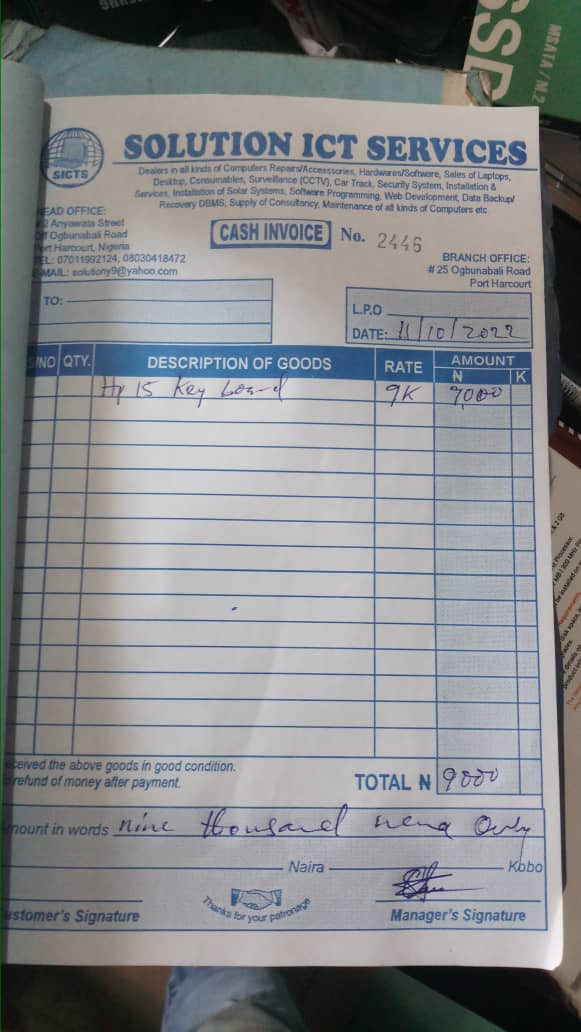 SSD
MSATA / M.2
SICTS
SOLUTION ICT SERVICES
Dealers in all kinds of Computers Repairs/Accesssories, Hardwares/Software, Sales of Laptops,
Desktop, Consumables, Surveillance (CCTV), Car Track, Security System, Installation &
Services, Installation of Solar Systems, Software Programming, Web Development, Data Backup/
Recovery DBMS, Supply of Consultancy, Maintenance of all kinds of Computers etc
EAD OFFICE:
2 Anyawata Street
Off Ogbunabali Road
ort Harcourt, Nigeria
EL: 07011992124, 08030418472
MAIL: solutiony9@yahoo.com
CASH INVOICE No. 2446
BRANCH OFFICE:
# 25 Ogbunabali Road
Port Harcourt
TO:
L.P.O
DATE: 11/10/2022
/NO QTY. DESCRIPTION OF GOODS RATE AMOUNT
₦ K
Hp 15 Key board 9K 9,000
ceived the above goods in good condition.
refund of money after payment.
TOTAL ₦ 9000
mount in words nine thousand nena Only
Naira Kobo
Thanks for your patronage
ustomer's Signature Manager's Signature